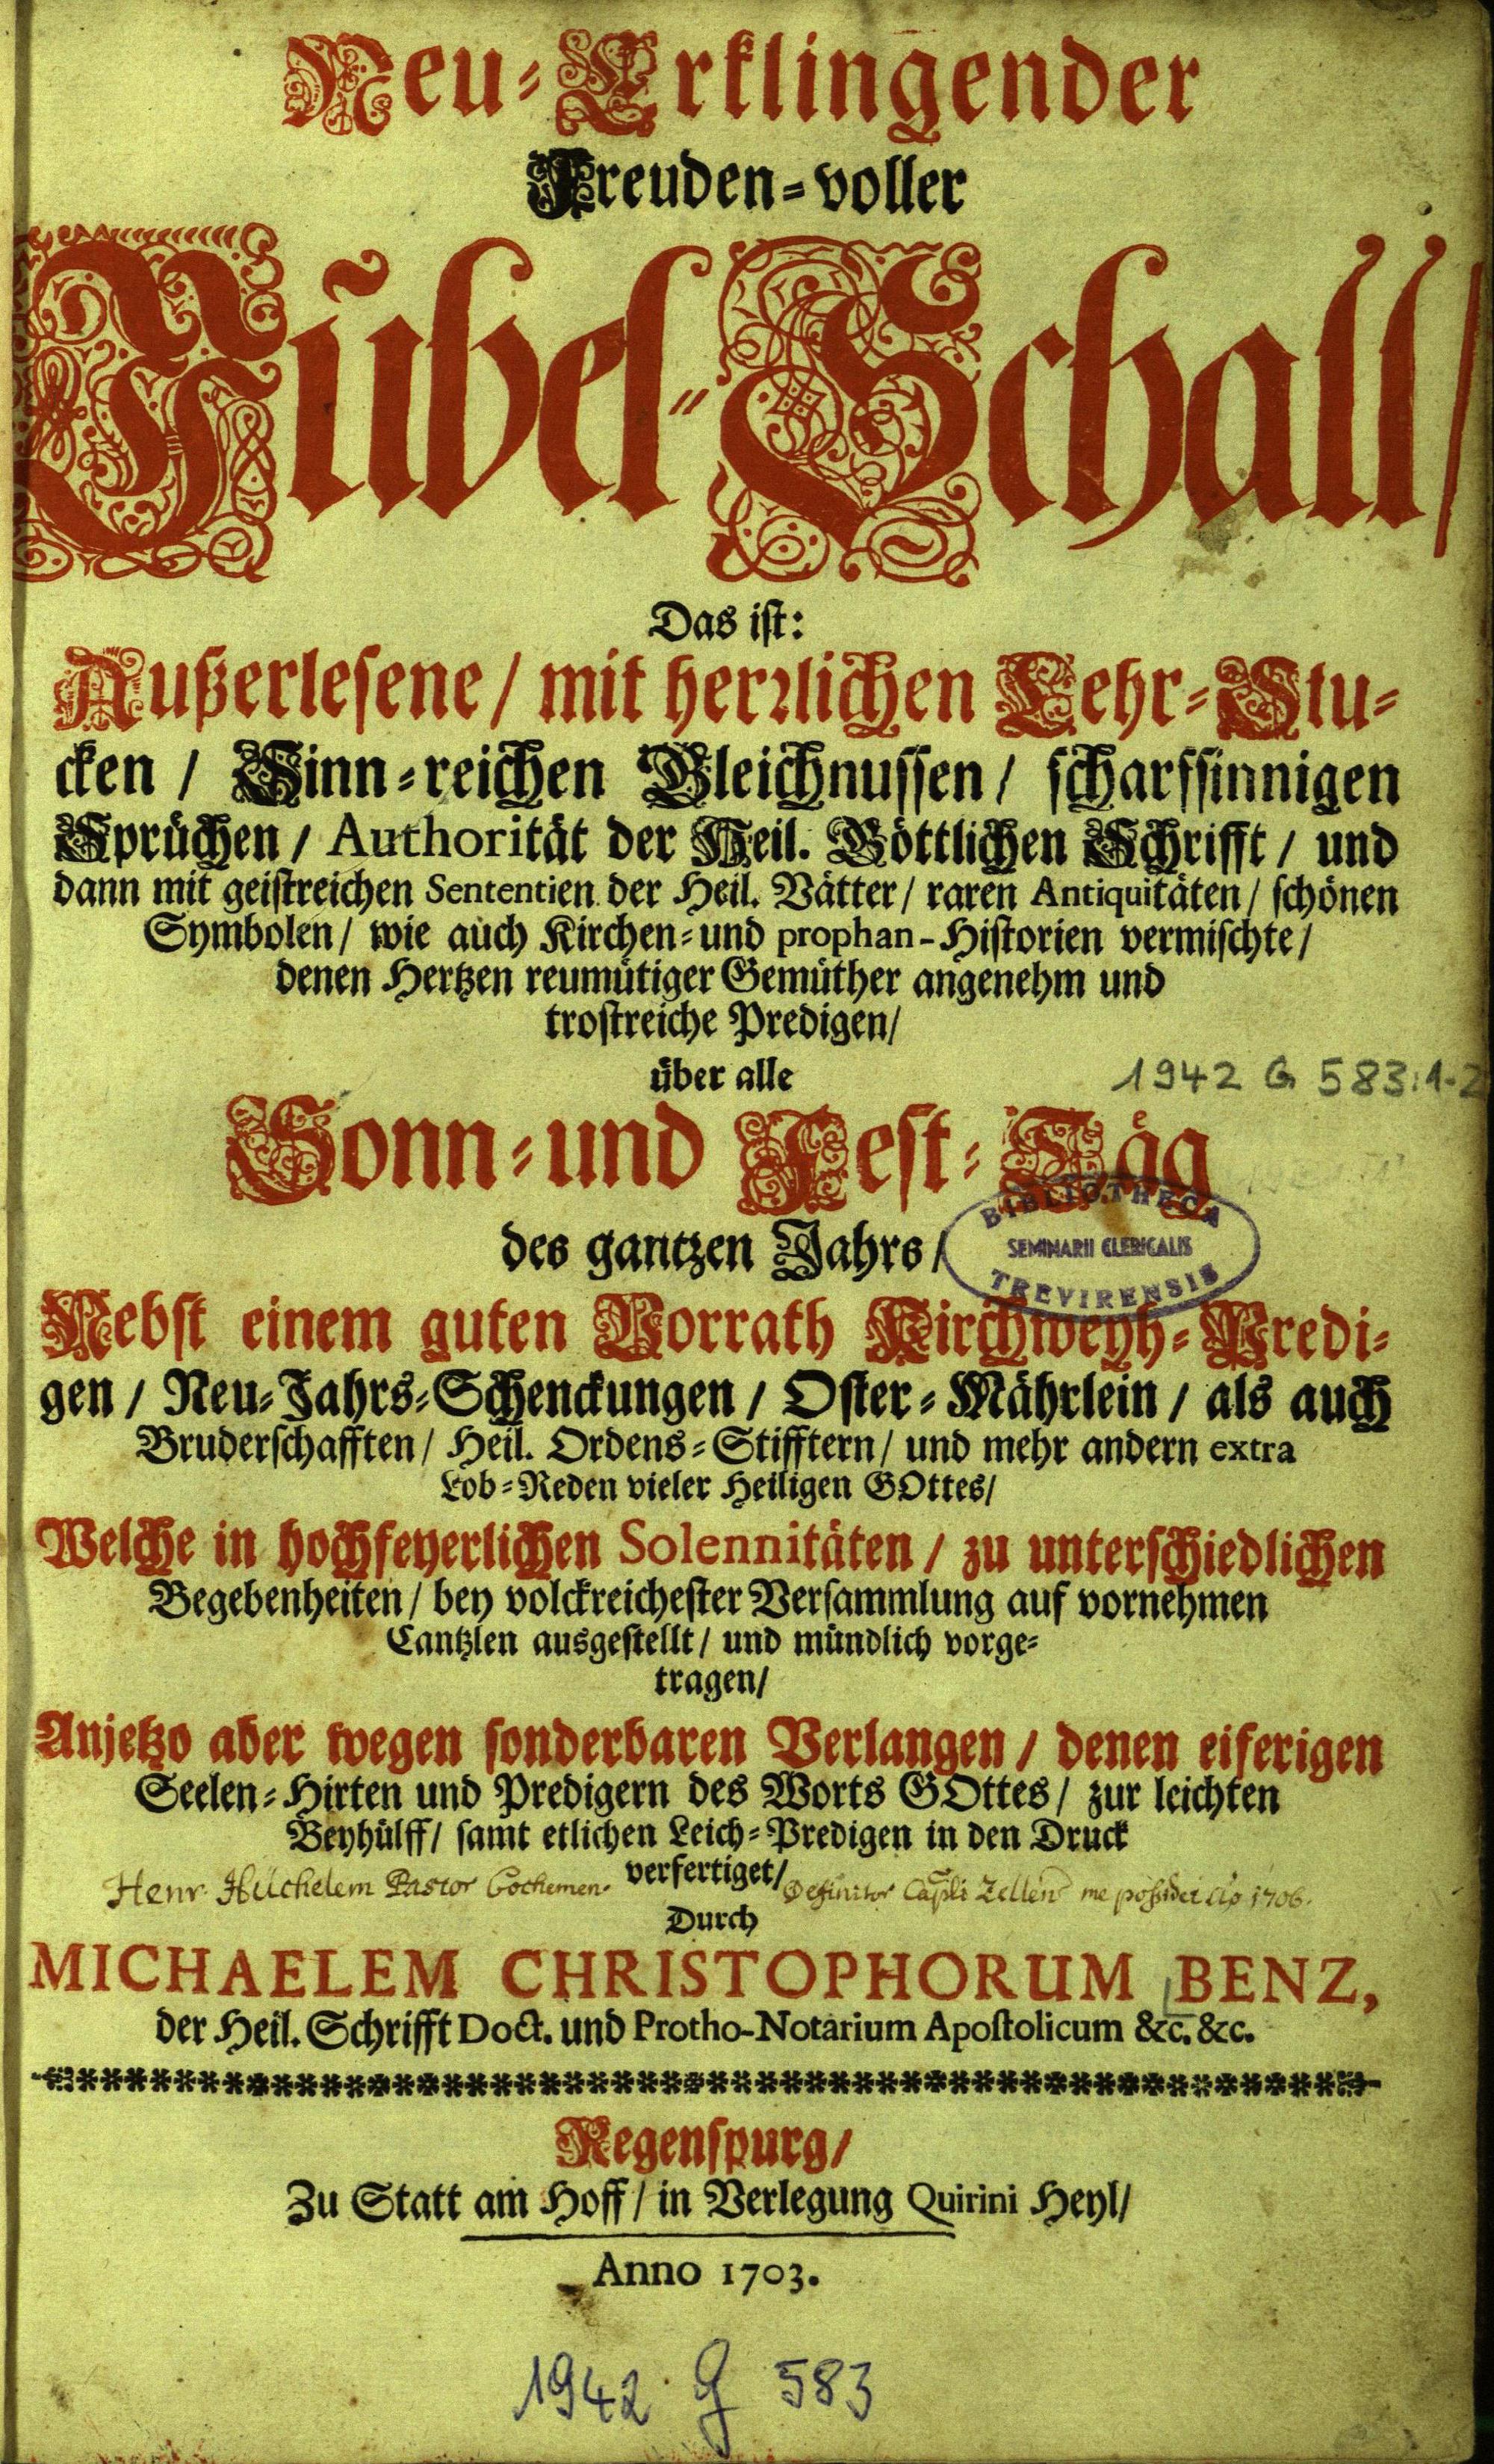 Neu-Erklingender
Freuden-voller
Jubel-Schall/
Das ist:
Außerlesene/ mit herrlichen Lehr-Stu-
cken/ Sinn-reichen Gleichnussen/ scharfsinnigen
Sprüchen/ Authorität der Heil. Göttlichen Schrifft/ und
dann mit geistreichen Sententien der Heil. Vätter/ raren Antiquitäten/ schönen
Symbolen/ wie auch Kirchen- und prophan-Historien vermischte/
denen Hertzen reumütiger Gemüther angenehm und
trostreiche Predigen/
über alle
1942 G 583:1-2
Sonn- und Fest-Täg
des gantzen Jahrs/
BIBLIOTHECA
SEMINARII CLERICALIS
TREVIRENSIS
Nebst einem guten Vorrath Kirchweyh-Predi-
gen/ Neu-Jahrs-Schenckungen/ Oster-Mährlein/ als auch
Bruderschafften/ Heil. Ordens-Stifftern/ und mehr andern extra
Lob-Reden vieler Heiligen GOttes/
Welche in hochfeyerlichen Solennitäten/ zu unterschiedlichen
Begebenheiten/ bey volckreichester Versammlung auf vornehmen
Cantzlen ausgestellt/ und mündlich vorge-
tragen/
Anjetzo aber wegen sonderbaren Verlangen/ denen eiferigen
Seelen-Hirten und Predigern des Worts GOttes/ zur leichten
Beyhülff/ samt etlichen Leich-Predigen in den Druck
verfertiget/
Henr. Hückelem Pastor Cochemen. Definitor Capli Zellens me possidet 1706.
Durch
MICHAELEM CHRISTOPHORUM BENZ,
der Heil. Schrifft Doct. und Protho-Notarium Apostolicum &c. &c.
Regenspurg/
Zu Statt am Hoff/ in Verlegung Quirini Heyl/
Anno 1703.
1942 G 583